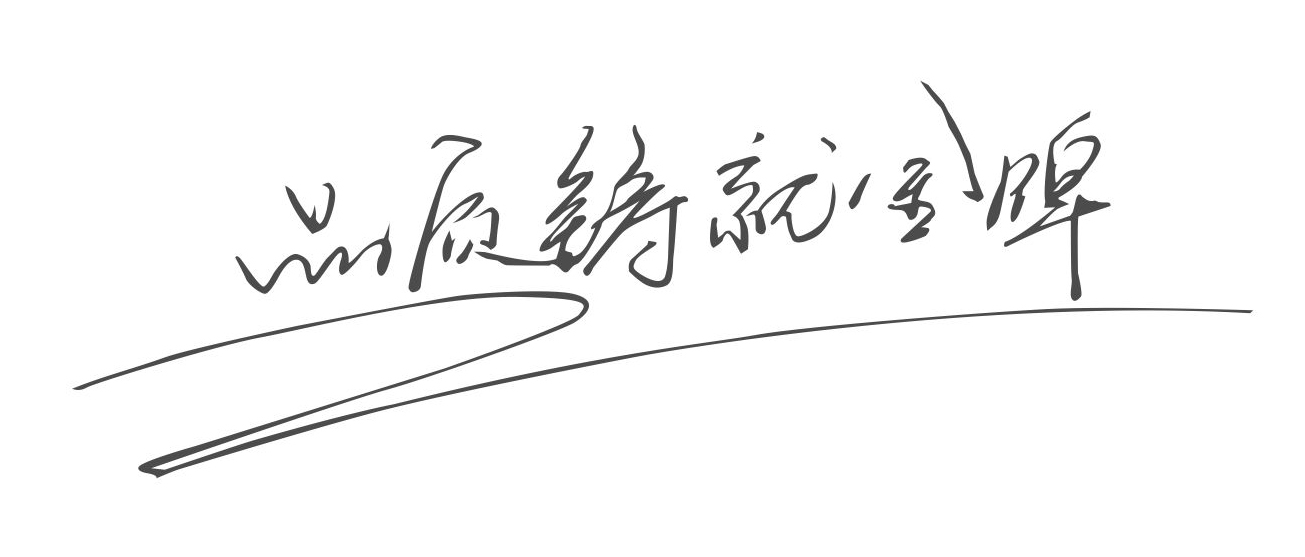 品质铸就金牌